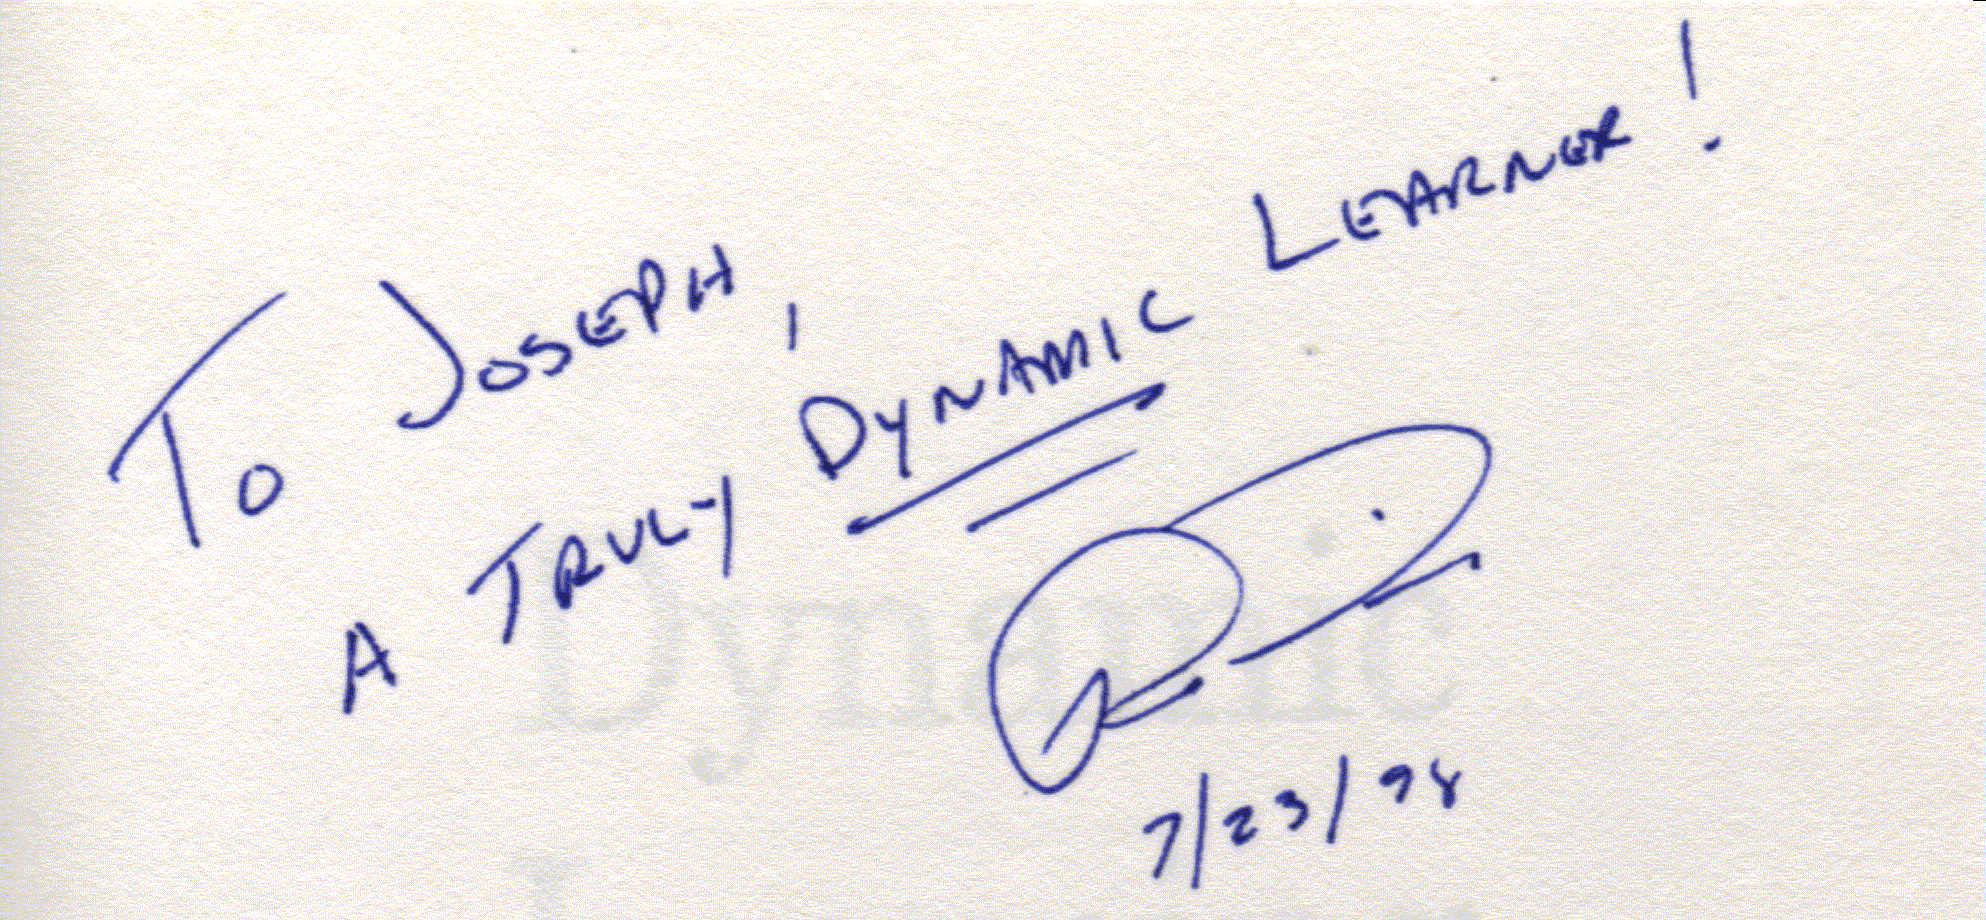 To Joseph,
A Truly Dynamic Learner!
7/23/98
Dynamic